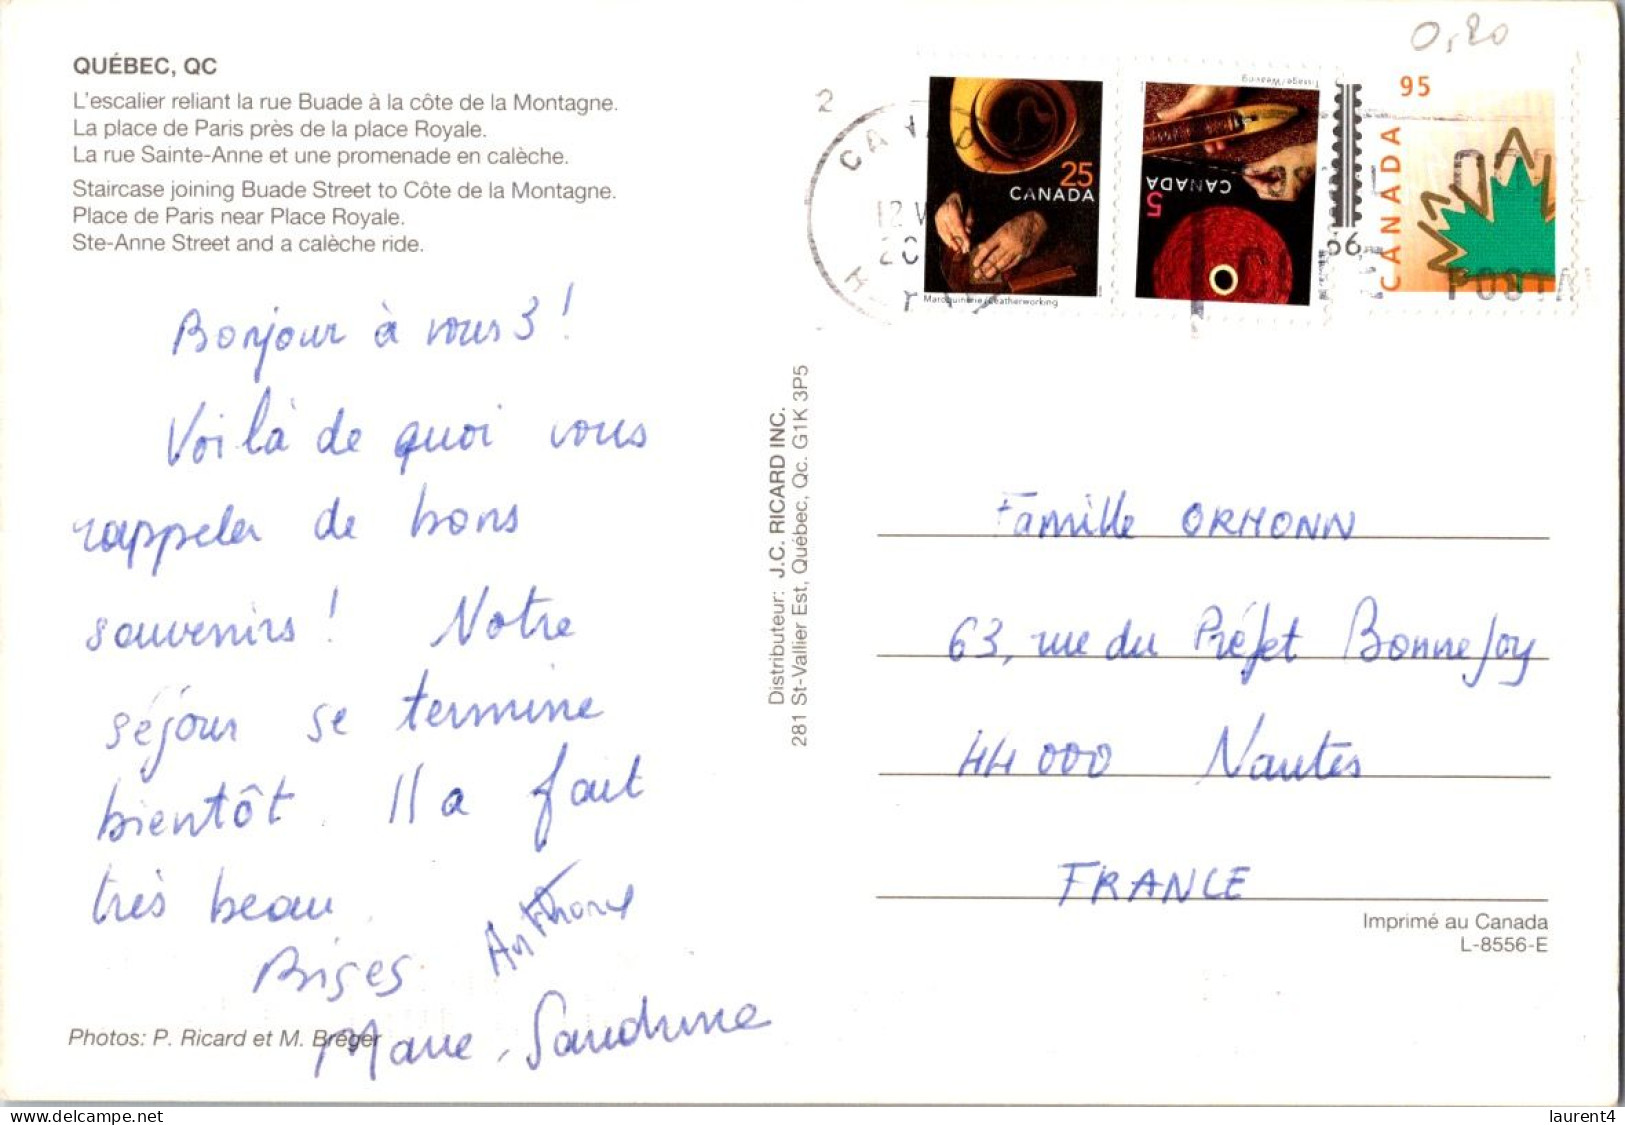 QUÉBEC, QC
L'escalier reliant la rue Buade à la côte de la Montagne.
La place de Paris près de la place Royale.
La rue Sainte-Anne et une promenade en calèche.
Staircase joining Buade Street to Côte de la Montagne.
Place de Paris near Place Royale.
Ste-Anne Street and a calèche ride.
Bonjour à vous 3 !
Voilà de quoi vous
rappeler de bons
souvenirs ! Notre
séjour se termine
bientôt. Il a fait
très beau.
Bises Anthony
Marie, Sandrine
Photos: P. Ricard et M. Breger
Distributeur: J.C. RICARD INC.
281 St-Vallier Est, Québec, Qc. G1K 3P5
2
0,20
25
CANADA
Maroquinerie/Leatherworking
Tissage/Weaving
CANADA
5
95
CANADA
Famille ORHONN
63, rue du Préfet Bonnefoy
44 000 Nantes
FRANCE
Imprimé au Canada
L-8556-E
laurent4
www.delcampe.net